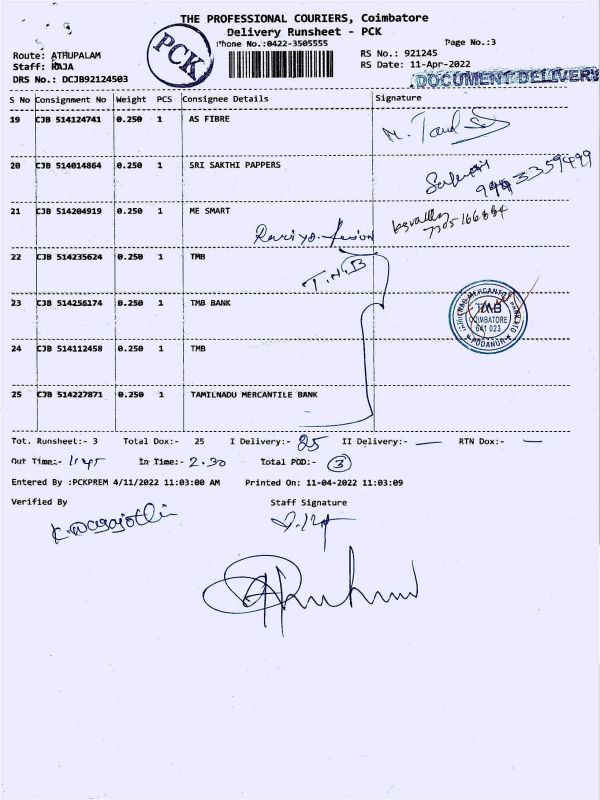 THE PROFESSIONAL COURIERS, Coimbatore
Delivery Runsheet - PCK
Phone No.:0422-3505555
Page No.:3
PCK
Route: ATHUPALAM
RS No.: 921245
Staff: RAJA
RS Date: 11-Apr-2022
DRS No.: DCJB92124503
DOCUMENT DELIVERY
S No Consignment No Weight PCS Consignee Details Signature
19 CJB 514124741 0.250 1 AS FIBRE
20 CJB 514014864 0.250 1 SRI SAKTHI PAPPERS
21 CJB 514204919 0.250 1 ME SMART
22 CJB 514235624 0.250 1 TMB
T.M.B
23 CJB 514256174 0.250 1 TMB BANK
TMB
COIMBATORE
641 023
PODANUR
24 CJB 514112458 0.250 1 TMB
25 CJB 514227871 0.250 1 TAMILNADU MERCANTILE BANK
Tot. Runsheet:- 3 Total Dox:- 25 I Delivery:- 25 II Delivery:- — RTN Dox:- —
Out Time:- 11.45 In Time:- 2.30 Total POD:- 3
Entered By :PCKPREM 4/11/2022 11:03:00 AM Printed On: 11-04-2022 11:03:09
Verified By Staff Signature